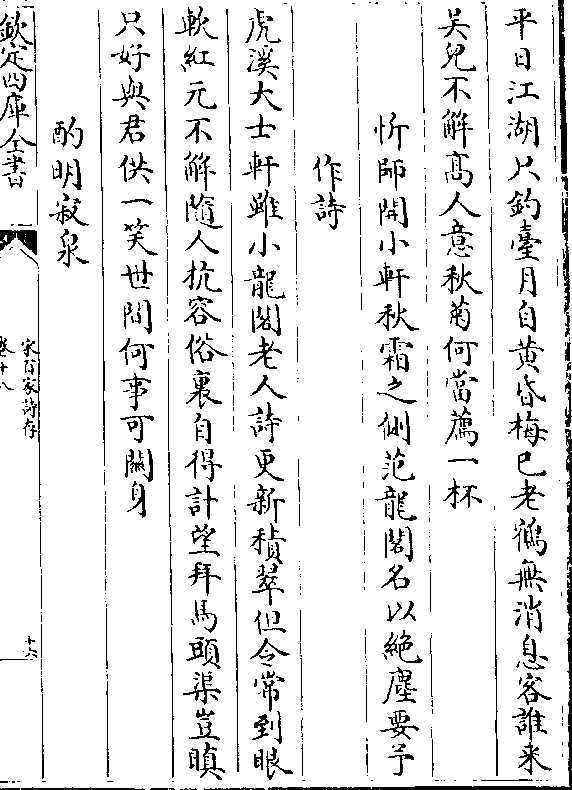 平日江湖只釣臺月自黄昏梅已老鶴無消息客誰来
吴兒不解髙人意秋菊何當薦一杯
忻師開小軒秋霜之側范龍閣名以絶塵要予
作詩
虎溪大士軒雖小龍閣老人詩更新積翠但令常到眼
軟紅元不解隨人抗容俗裏自得計望拜馬頭渠豈瞋
只好與君供一笑世間何事可關身
酌明寂泉
欽定四庫全書
宋百家詩存
卷十八
十六